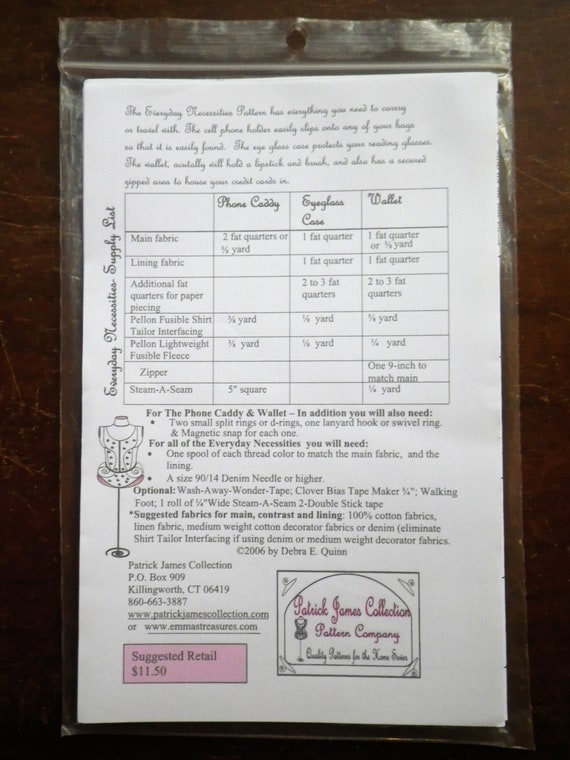 The Everyday Necessities Pattern has everything you need to carrry
or travel with. The cell phone holder easily slips onto any of your bags
so that it is easily found. The eye glass case protects your reading glasses.
The wallet, acutally will hold a lipstick and brush, and also has a secured
zipped area to house your credit cards in.
Everyday Necessities- Supply List
Phone Caddy Eyeglass Wallet
Case
Main fabric 2 fat quarters or 1 fat quarter 1 fat quarter
½ yard or ⅜ yard
Lining fabric 1 fat quarter 1 fat quarter
Additional fat 2 to 3 fat 2 to 3 fat
quarters for paper quarters quarters
piecing
Pellon Fusible Shirt ⅜ yard ⅛ yard ⅝ yard
Tailor Interfacing
Pellon Lightweight ⅜ yard ⅛ yard ¼ yard
Fusible Fleece
Zipper One 9-inch to
match main
Steam-A-Seam 5" square ¼ yard
For The Phone Caddy & Wallet – In addition you will also need:
• Two small split rings or d-rings, one lanyard hook or swivel ring.
& Magnetic snap for each one.
For all of the Everyday Necessities you will need:
• One spool of each thread color to match the main fabric, and the
lining.
• A size 90/14 Denim Needle or higher.
Optional: Wash-Away-Wonder-Tape; Clover Bias Tape Maker ¾"; Walking
Foot; 1 roll of ¼"Wide Steam-A-Seam 2-Double Stick tape
*Suggested fabrics for main, contrast and lining: 100% cotton fabrics,
linen fabric, medium weight cotton decorator fabrics or denim (eliminate
Shirt Tailor Interfacing if using denim or medium weight decorator fabrics.
©2006 by Debra E. Quinn
Patrick James Collection
P.O. Box 909
Killingworth, CT 06419
860-663-3887
www.patrickjamescollection.com
or www.emmastreasures.com
Suggested Retail
$11.50
Patrick James Collection
Pattern Company
Quality Patterns for the Home Sewer